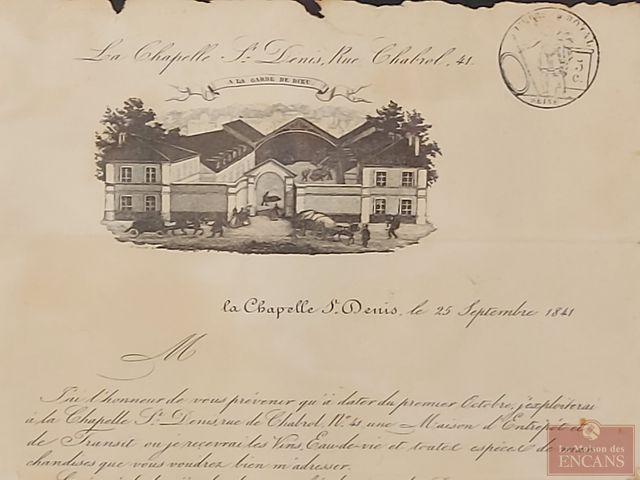 La Chapelle St. Denis, Rue Chabrol, 41.
A LA GARDE DE DIEU
SEINE
la Chapelle St. Denis, le 25 Septembre 1841
M
J'ai l'honneur de vous prévenir qu'à dater du premier Octobre, j'exploiterai
à la Chapelle St. Denis, rue de Chabrol, No. 41, une Maison d'Entrepôt et
de Transit ou je recevrai les Vins, Eau-de-vie et toutes espèces de mar-
chandises que vous voudrez bien m'adresser.
La Maison des
ENCANS